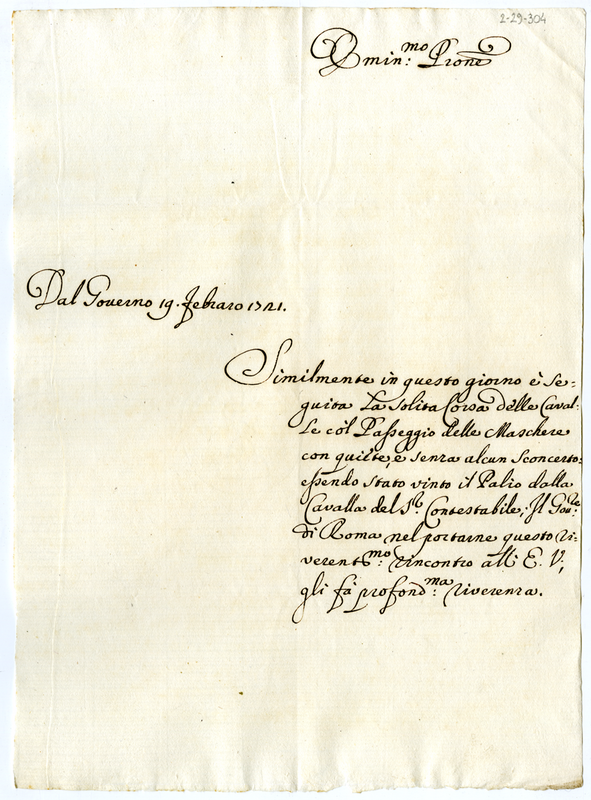 2-29-304
Emin:mo Prone
Dal Governo 19. febraro 1721.
Similmente in questo giorno è se=
guita La solita Corsa delle Caval=
Le col Passeggio delle Maschere
con quiete, e senza alcun sconcerto:
essendo stato vinto il Palio dalla
Cavalla del Sr. Contestabile; Il Gou:re
di Roma nel portarne questo ri=
verentmo: rincontro all' E. V;
gli fà profondma: riverenza.